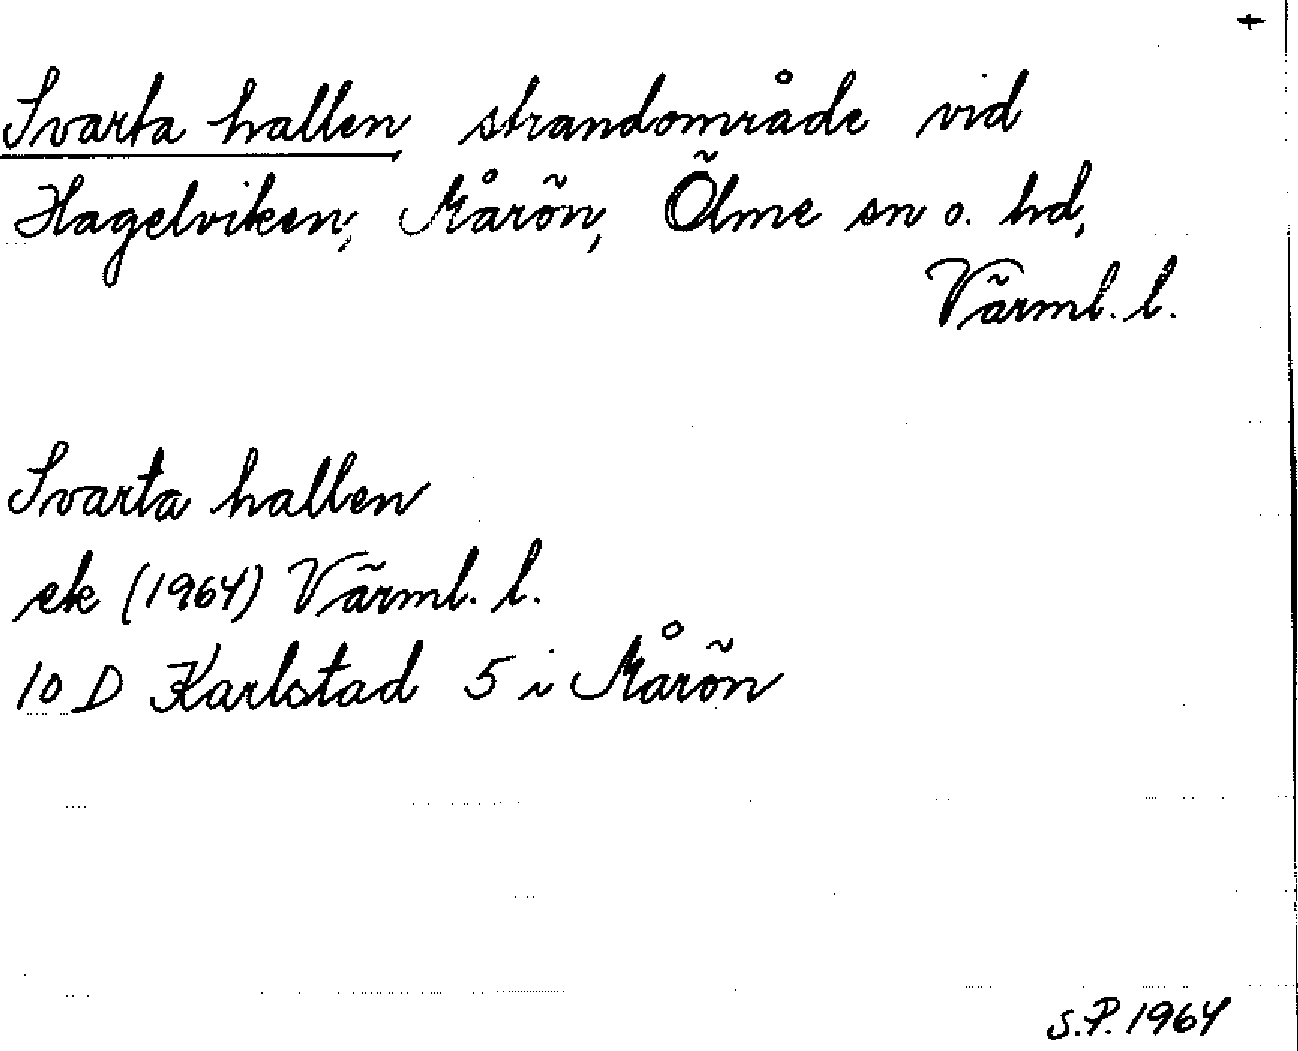 +
Svarta hallen strandområde vid
Hagelviken, Mårön, Ölme sn o. hd,
Värml. l.
Svarta hallen
ek (1964) Värml. l.
10 D Karlstad 5 i Mårön
S.P. 1964